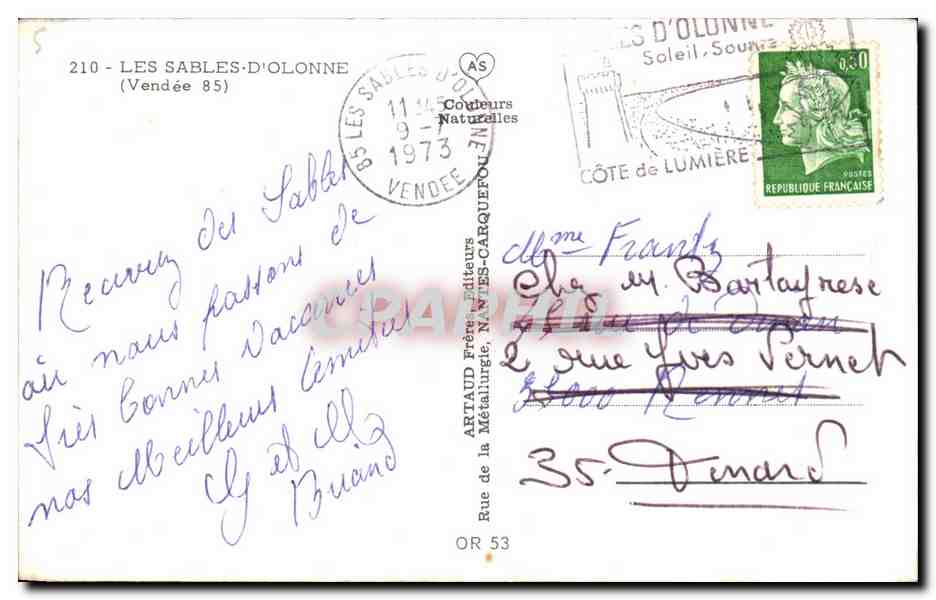 5
210 - LES SABLES-D'OLONNE
(Vendée 85)
AS
Couleurs
Naturelles
85 LES SABLES D'OLONNE
11 H45
9 - 7
1973
VENDEE
LES D'OLONNE
Soleil, Sourire
CÔTE de LUMIÈRE
0,30
POSTES
REPUBLIQUE FRANÇAISE
des Sables
où nous passons de
très bonnes vacances
nos Meilleures Amitiés
et
Briand
ARTAUD Frères, Editeurs
Rue de la Métallurgie, NANTES-CARQUEFOU
Mme Frantz
Chez M. Bartayrese
2 rue Yves Vernet
35000 Rennes
35 - Dinard
OR 53
CPARAMA